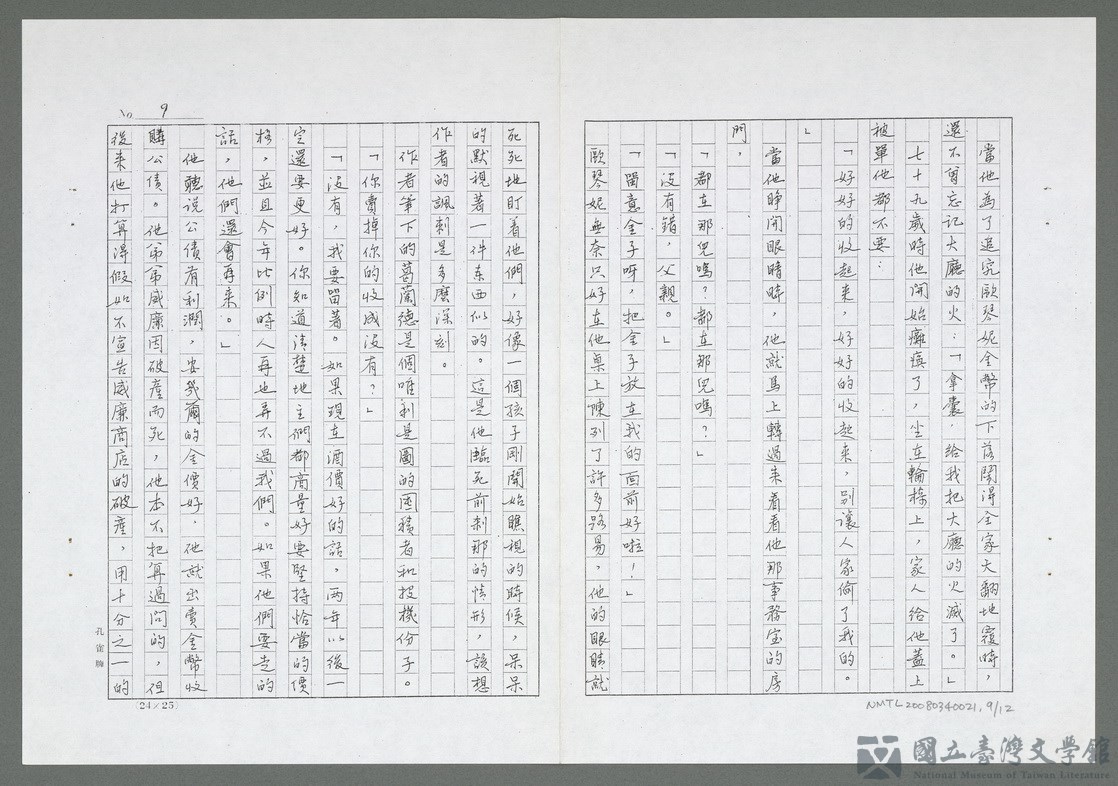 當他為了追究歐琴妮金幣的下落鬧得全家大翻地覆時，
還不曾忘記大廳的火：「拿囊，給我把大廳的火滅了。」
七十九歲時他開始癱瘓了，坐在輪椅上，家人給他蓋上
被單他都不要：
「好好的收起來，好好的收起來，別讓人家偷了我的。
」
當他睜開眼睛時，他就馬上轉過來看看他那事務室的房
門，
「都在那兒嗎？都在那兒嗎？」
「沒有錯，父親。」
「留意金子呀，把金子放在我的面前好啦！」
歐琴妮無奈只好在他桌上陳列了許多路易，他的眼睛就
No 9
死死地盯着他們，好像一個孩子剛開始瞧視的時候，呆呆
的默視著一件東西似的。這是他臨死前刹那的情形，該想
作者的諷刺是多麼深刻。
作者筆下的葛蘭德是個唯利是圖的囤積者和投機份子。
「你賣掉你的收成沒有？」
「沒有，我要留著。如果現在酒價好的話，兩年以後一
定還要更好。你知道清楚地主們都商量好要堅持恰當的價
格，並且今年比例時人再也弄不過我們。如果他們要走的
話，他們還會再来。」
他聽说公債有利潤，安我爾的金價好，他就出賣金幣收
購公債。他弟弟威廉因破產而死，他本不把算過问的，但
後来他打算得假如不宣告威廉商店的破產，用十分之一的
孔雀牌
(24×25)
NMTL20080340021, 9/12
國立臺灣文學館
National Museum of Taiwan Literature